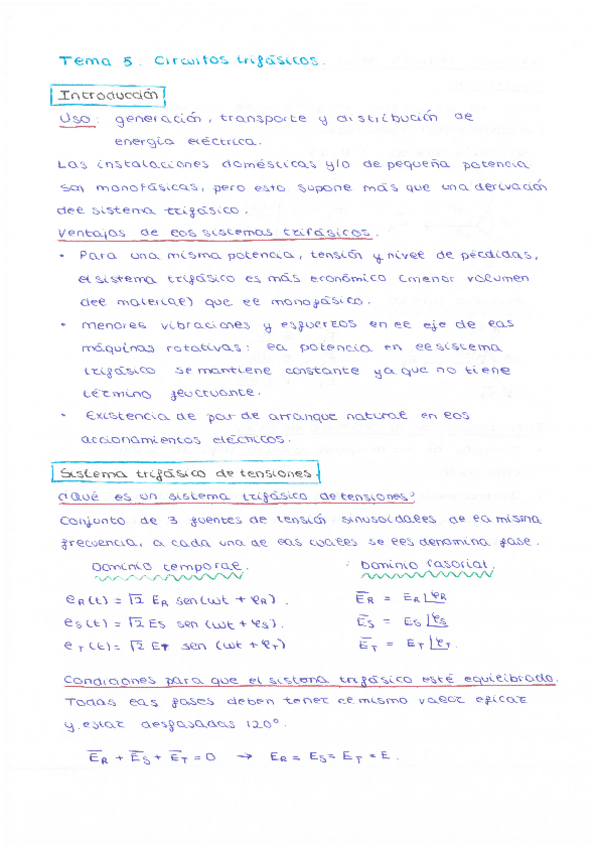 Tema 5. Circuitos trifásicos.
Introducción
Uso: generación, transporte y distribución de
energía eléctrica.
Las instalaciones domésticas y/o de pequeña potencia
son monofásicas, pero esto supone más que una derivación
del sistema trifásico.
Ventajas de los sistemas trifásicos.
• Para una misma potencia, tensión y nivel de pérdidas,
el sistema trifásico es más económico (menor volumen
del material) que el monofásico.
• Menores vibraciones y esfuerzos en el eje de las
máquinas rotativas: la potencia en el sistema
trifásico se mantiene constante ya que no tiene
término fluctuante.
• Existencia de par de arranque natural en los
accionamientos eléctricos.
Sistema trifásico de tensiones.
¿Qué es un sistema trifásico de tensiones?
Conjunto de 3 fuentes de tensión sinusoidales de la misma
frecuencia, a cada una de las cuales se les denomina fase.
Dominio temporal. Dominio fasorial.
e_R(t) = √2 E_R sen(ωt + φ_R). Ē_R = E_R∠φ_R
e_S(t) = √2 E_S sen(ωt + φ_S). Ē_S = E_S∠φ_S
e_T(t) = √2 E_T sen(ωt + φ_T) Ē_T = E_T∠φ_T.
Condiciones para que el sistema trifásico esté equilibrado.
Todas las fases deben tener el mismo valor eficaz
y estar desfasadas 120°.
Ē_R + Ē_S + Ē_T = 0 → E_R = E_S = E_T = E.